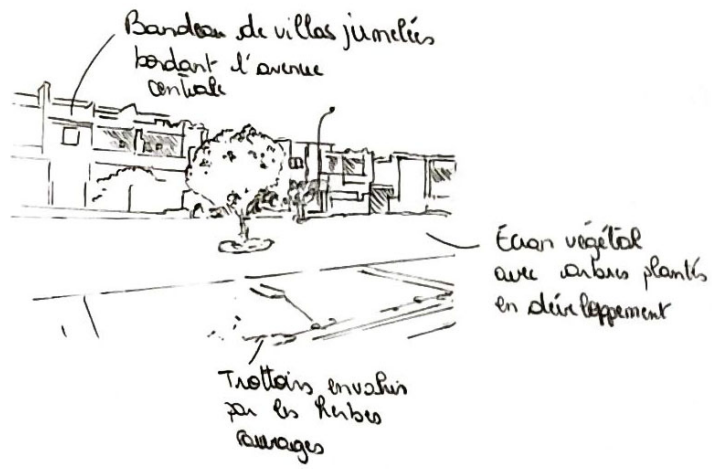 Bandeau de villas jumelées
bordant l'avenue
centrale
Écran végétal
avec arbres plantés
en développement
Trottoirs envahis
par les herbes
sauvages